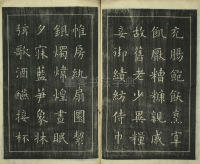 充腸飽飫烹宰
飢厭糟糠親戚
故舊老少異糧
妾御績紡侍巾
帷房紈扇圓絜
銀燭煒煌晝眠
夕寐藍笋象床
弦歌酒讌接杯